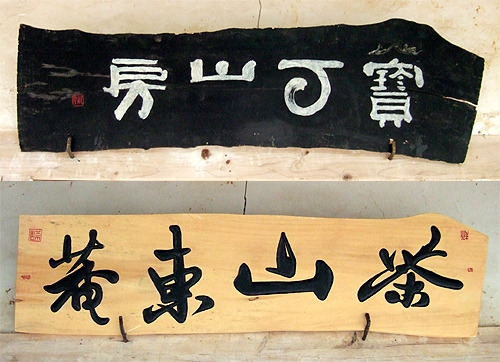 寶丁山房
茶山東菴